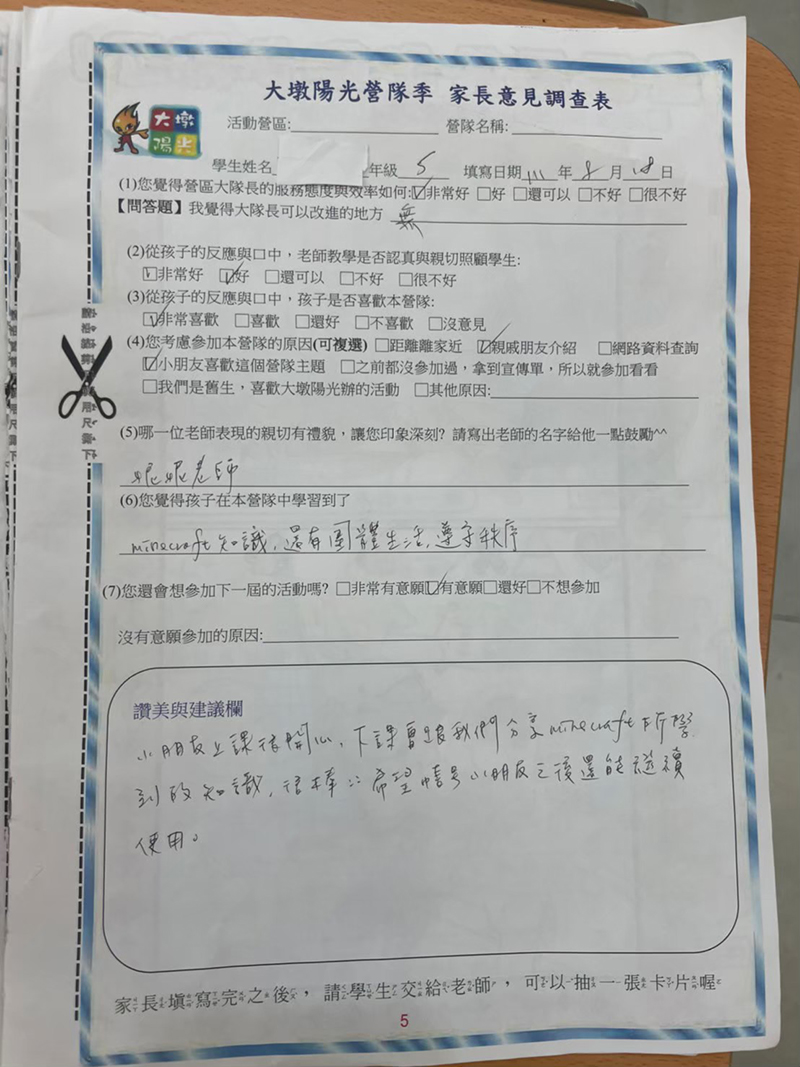 大墩陽光營隊季 家長意見調查表
大墩
陽光
活動營區: 營隊名稱:
學生姓名 年級 5 填寫日期 111 年 8 月 18 日
(1)您覺得營區大隊長的服務態度與效率如何:☑非常好 □好 □還可以 □不好 □很不好
【問答題】我覺得大隊長可以改進的地方 無
(2)從孩子的反應與口中，老師教學是否認真與親切照顧學生:
☑非常好 ☑好 □還可以 □不好 □很不好
(3)從孩子的反應與口中，孩子是否喜歡本營隊:
☑非常喜歡 □喜歡 □還好 □不喜歡 □沒意見
(4)您考慮參加本營隊的原因(可複選) □距離離家近 ☑親戚朋友介紹 □網路資料查詢
☑小朋友喜歡這個營隊主題 □之前都沒參加過，拿到宣傳單，所以就參加看看
□我們是舊生，喜歡大墩陽光辦的活動 □其他原因:
(5)哪一位老師表現的親切有禮貌，讓您印象深刻? 請寫出老師的名字給他一點鼓勵^^
妮妮老師
(6)您覺得孩子在本營隊中學習到了
minecraft 知識，還有團體生活，遵守秩序
(7)您還會想參加下一屆的活動嗎? □非常有意願☑有意願□還好□不想參加
沒有意願參加的原因:
讚美與建議欄
小朋友上課很開心，下課會跟我們分享minecraft所學
到的知識，很棒:: 希望帳號小朋友之後還能繼續
使用。
家長填寫完之後，請學生交給老師，可以抽一張卡片喔
5